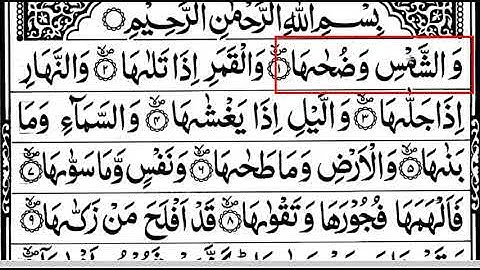 بِسْمِ اللّٰهِ الرَّحْمٰنِ الرَّحِيْمِ
وَالشَّمْسِ وَضُحٰىهَا ۪ۙ﴿۱﴾ وَالْقَمَرِ اِذَا تَلٰىهَا ۪ۙ﴿۲﴾ وَالنَّهَارِ
اِذَا جَلّٰىهَا ۪ۙ﴿۳﴾ وَالَّيْلِ اِذَا يَغْشٰىهَا ۪ۙ﴿۴﴾ وَالسَّمَآءِ وَمَا
بَنٰىهَا ۪ۙ﴿۵﴾ وَالْاَرْضِ وَمَا طَحٰىهَا ۪ۙ﴿۶﴾ وَنَفْسٍ وَّمَا سَوّٰىهَا ۪ۙ﴿۷﴾
فَاَلْهَمَهَا فُجُوْرَهَا وَتَقْوٰىهَا ۪ۙ﴿۸﴾ قَدْ اَفْلَحَ مَنْ زَكّٰىهَا ۪ۙ﴿۹﴾